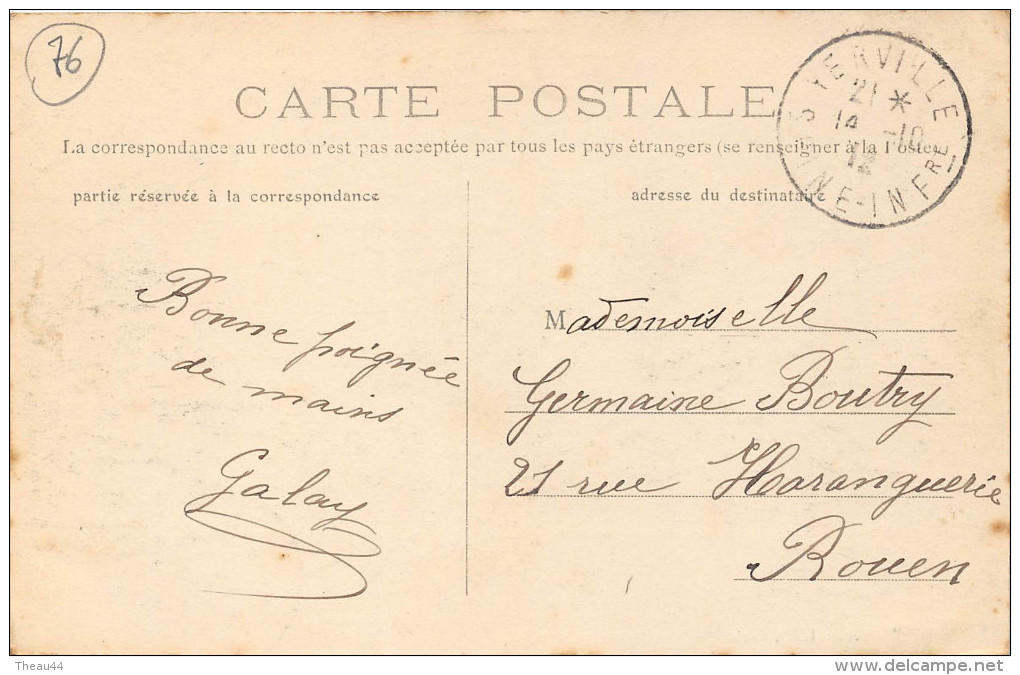 76
CARTE POSTALE
La correspondance au recto n'est pas acceptée par tous les pays étrangers (se renseigner à la Poste)
partie réservée à la correspondance
adresse du destinataire
YERVILLE
21 *
14 -10
12
SEINE-INFRE
Bonne poignée
de mains
Galay
Mademoiselle
Germaine Boutry
21 rue Haranguerie
Rouen
Theau44
www.delcampe.net